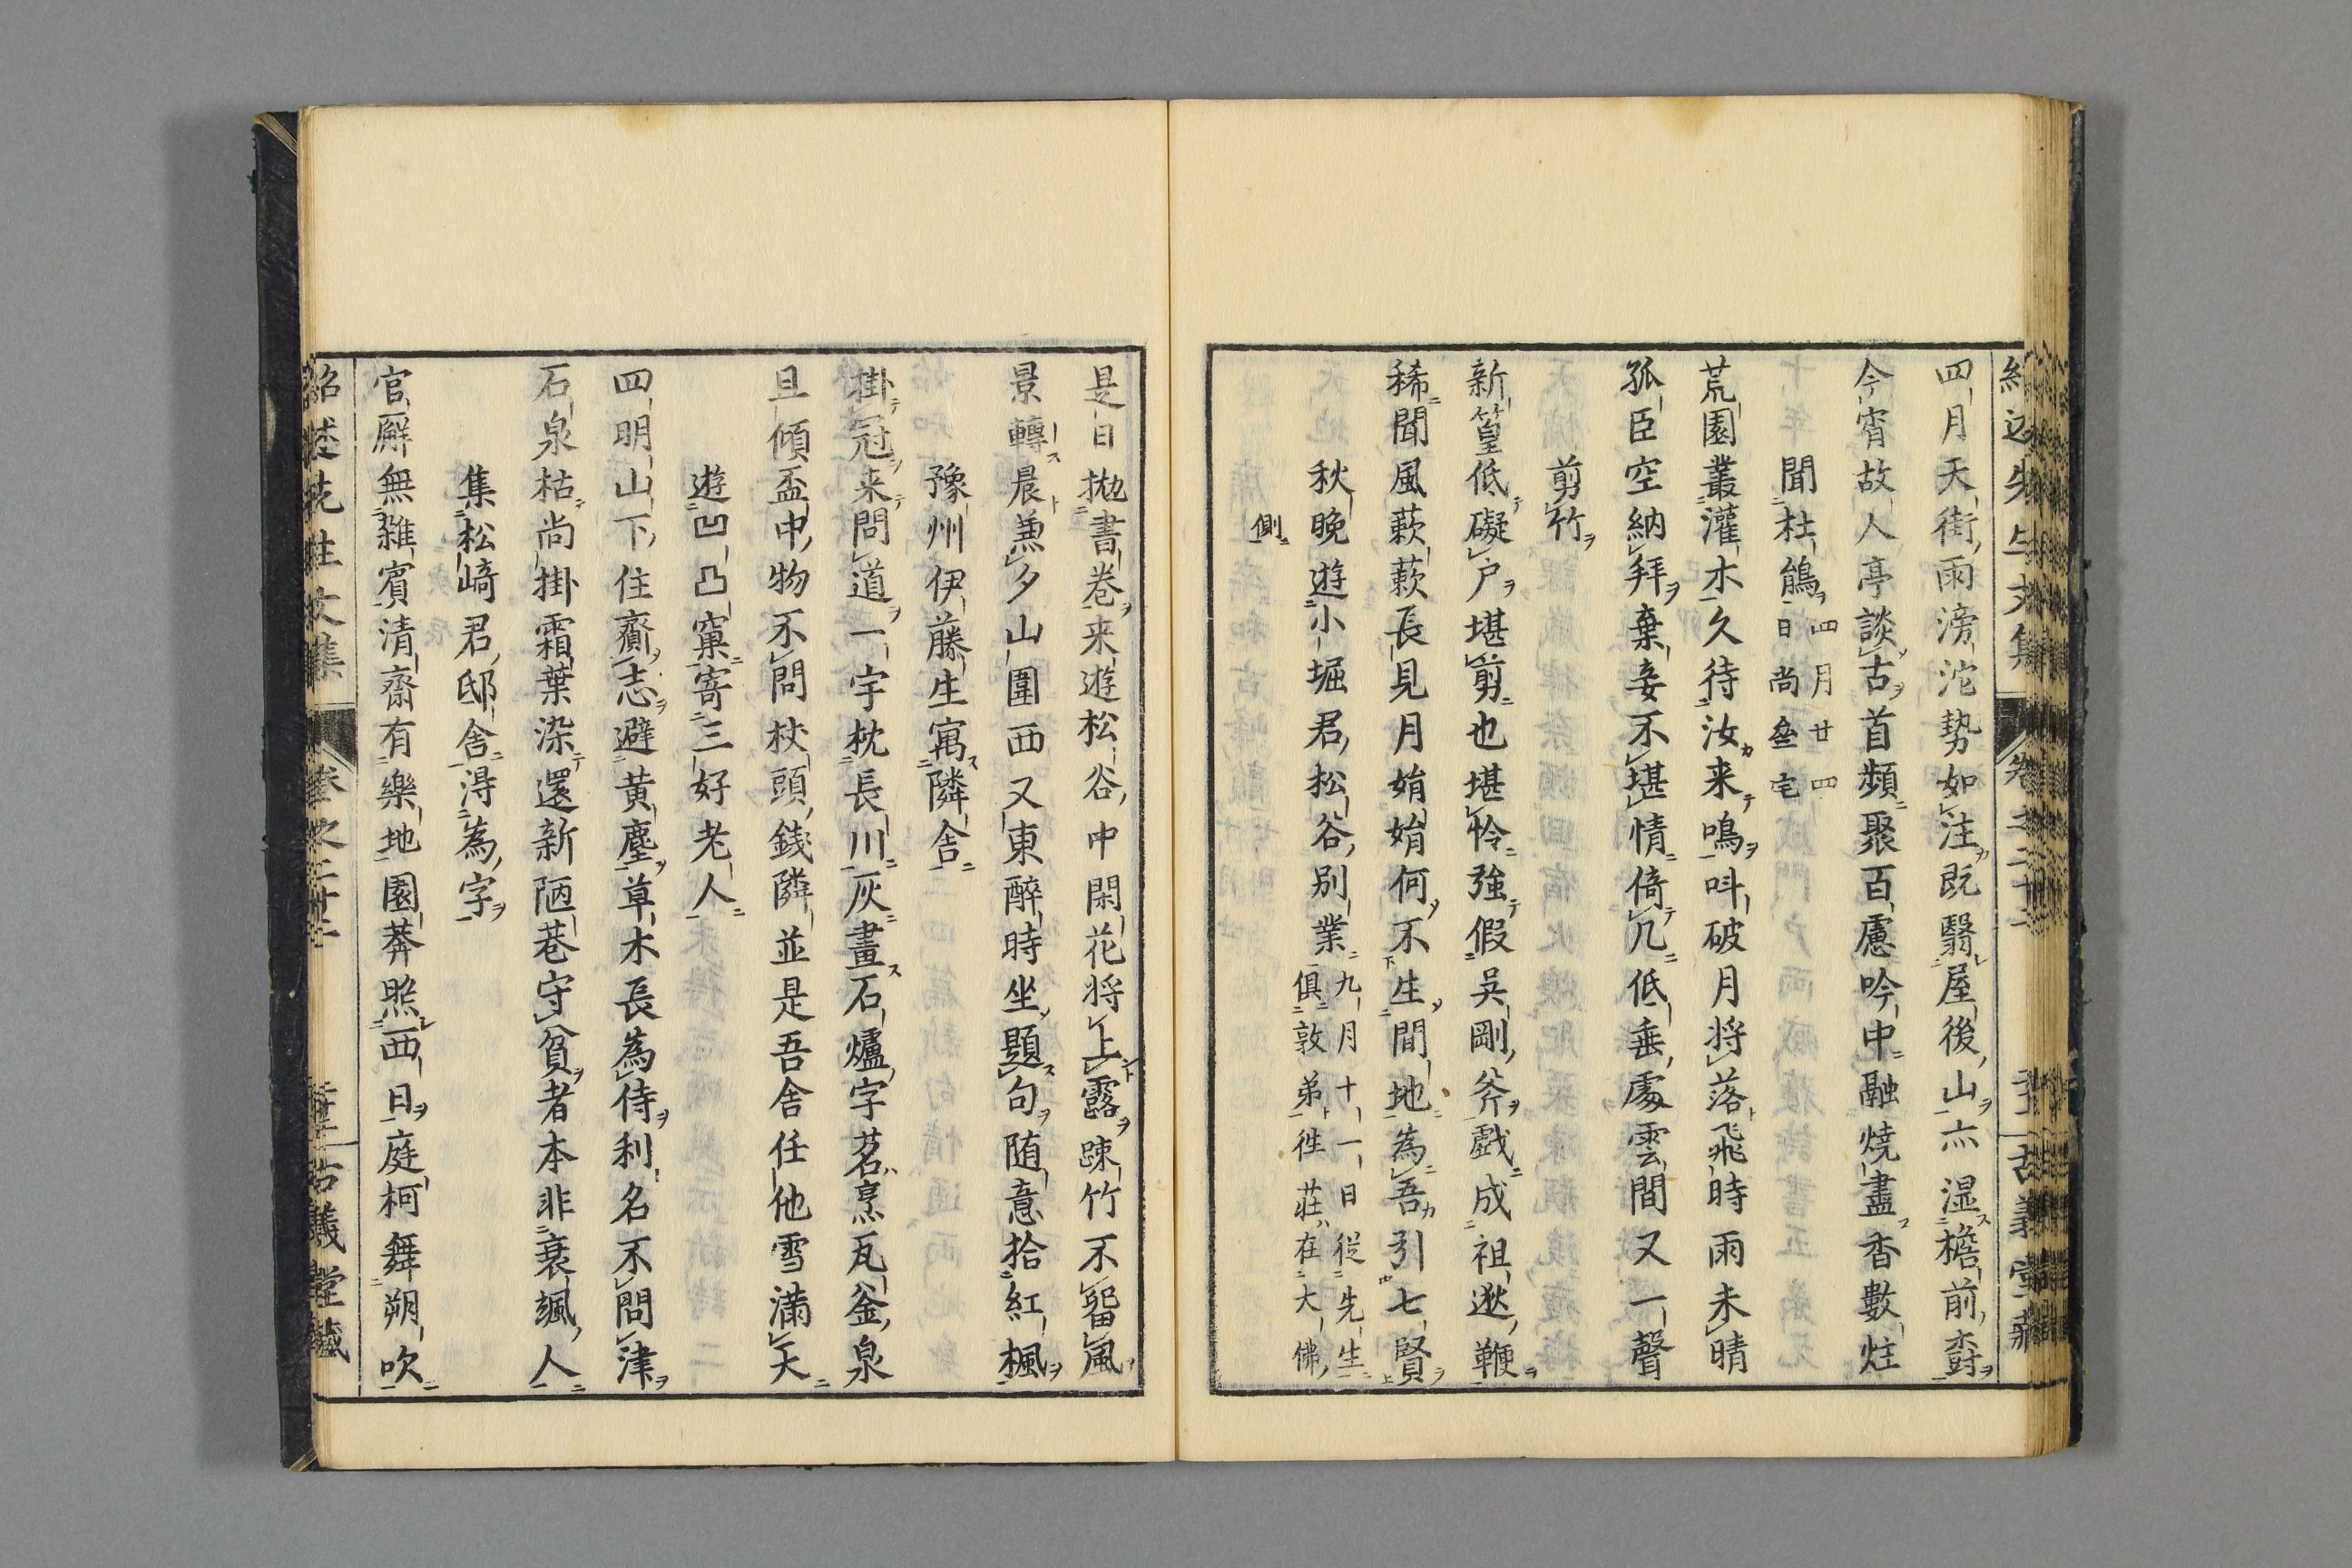 四月天街雨滂沱勢如注既翳屋後山亦湿檐前𣗳
今宵故人亭談古首頻聚百慮吟中融燒盡香數炷
聞杜鵑四月廿四
日尚叄宅
荒園叢灌木久待汝来鳴叫破月将落飛時雨未晴
孤臣空納拜棄妾不堪情倚几低垂處雲間又一聲
剪竹
新篁低礙户堪剪也堪怜強假吳剛斧戲成祖逖鞭
稀聞風蔌蔌長見月娟娟何不生間地為吾引七賢
秋晚遊小堀君松谷别業九月十一日從先生
俱敦弟徃莊在大佛
側
是日拋書巻来遊松谷中閑花将上露踈竹不留風
景轉晨兼夕山圍西又東醉時坐題句随意拾紅楓
豫州伊藤生寓隣舎
掛冠来問道一宇枕長川灰畫石爐字茗烹瓦釜泉
且傾盃中物不問杖頭錢隣並是吾舍任他雪満天
遊凹凸窠寄三好老人
四明山下住齎志避黄塵草木長為侍利名不問津
石泉枯尚掛霜葉染還新陋巷守貧者本非衰颯人
集松﨑君邸舎淂為字
官廨無雜賓清齋有樂地園莽照西日庭柯舞朔吹
紹述先生文集　卷之二十二　古義堂藏